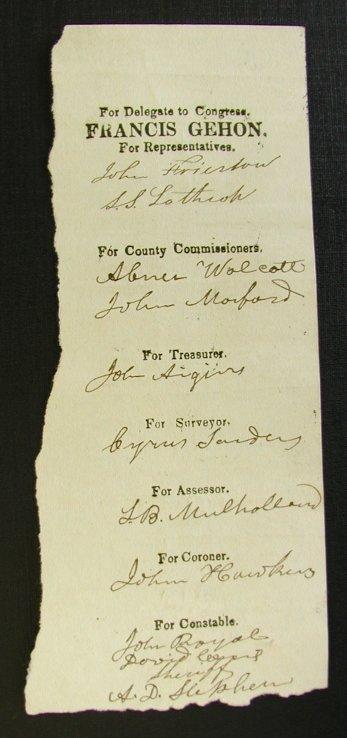 For Delegate to Congress.
FRANCIS GEHON,
For Representatives.
John Frierson
S.S. Lathrop
For County Commissioners.
Abner Wolcott
John Morford
For Treasurer.
John
For Surveyor.
Cyrus Sanders
For Assessor.
S.B. Mulholland
For Coroner.
John Hawkins
For Constable.
John Royal
David
Sheriff
A. D. Stephen